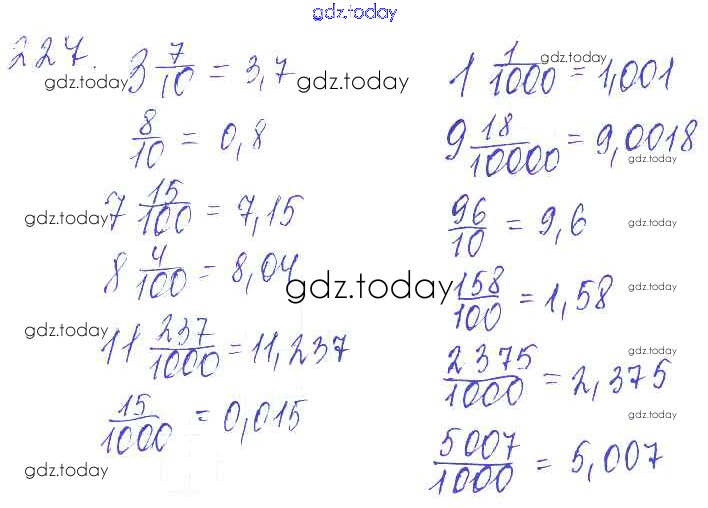 gdz.today
227. 3 7/10 = 3,7
gdz.today gdz.today
8/10 = 0,8
7 15/100 = 7,15
gdz.today
8 4/100 = 8,04
gdz.today
11 237/1000 = 11,237
gdz.today
15/1000 = 0,015
gdz.today
1 1/1000 = 1,001
gdz.today
9 18/10000 = 9,0018
gdz.today
96/10 = 9,6
gdz.today
158/100 = 1,58
gdz.today
2375/1000 = 2,375
gdz.today
gdz.today
5007/1000 = 5,007
gdz.today